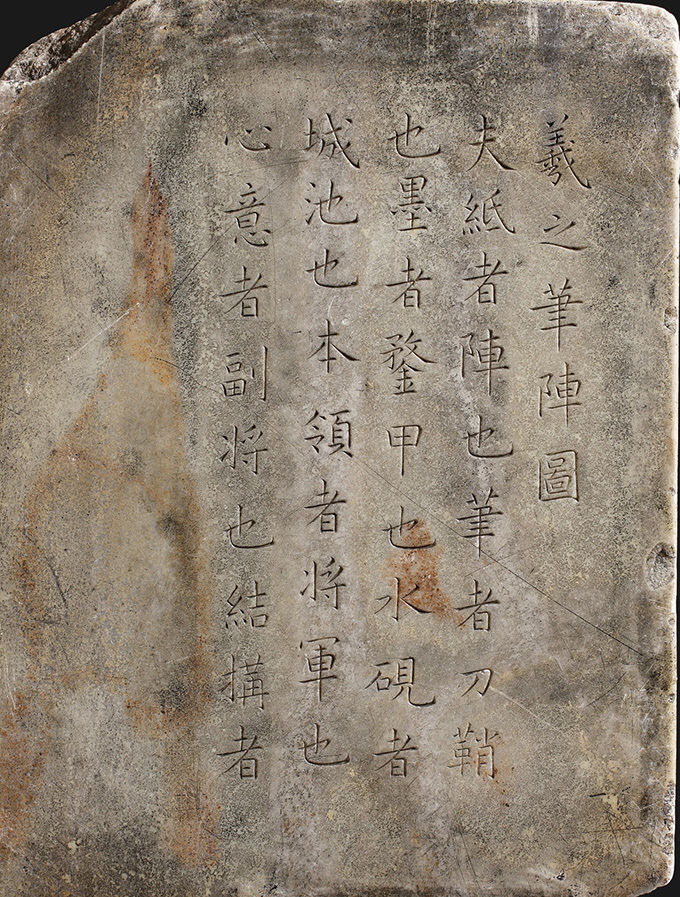 羲之筆陣圖
夫紙者陣也筆者刀鞘
也墨者鍪甲也水硯者
城池也本領者将軍也
心意者副将也結搆者